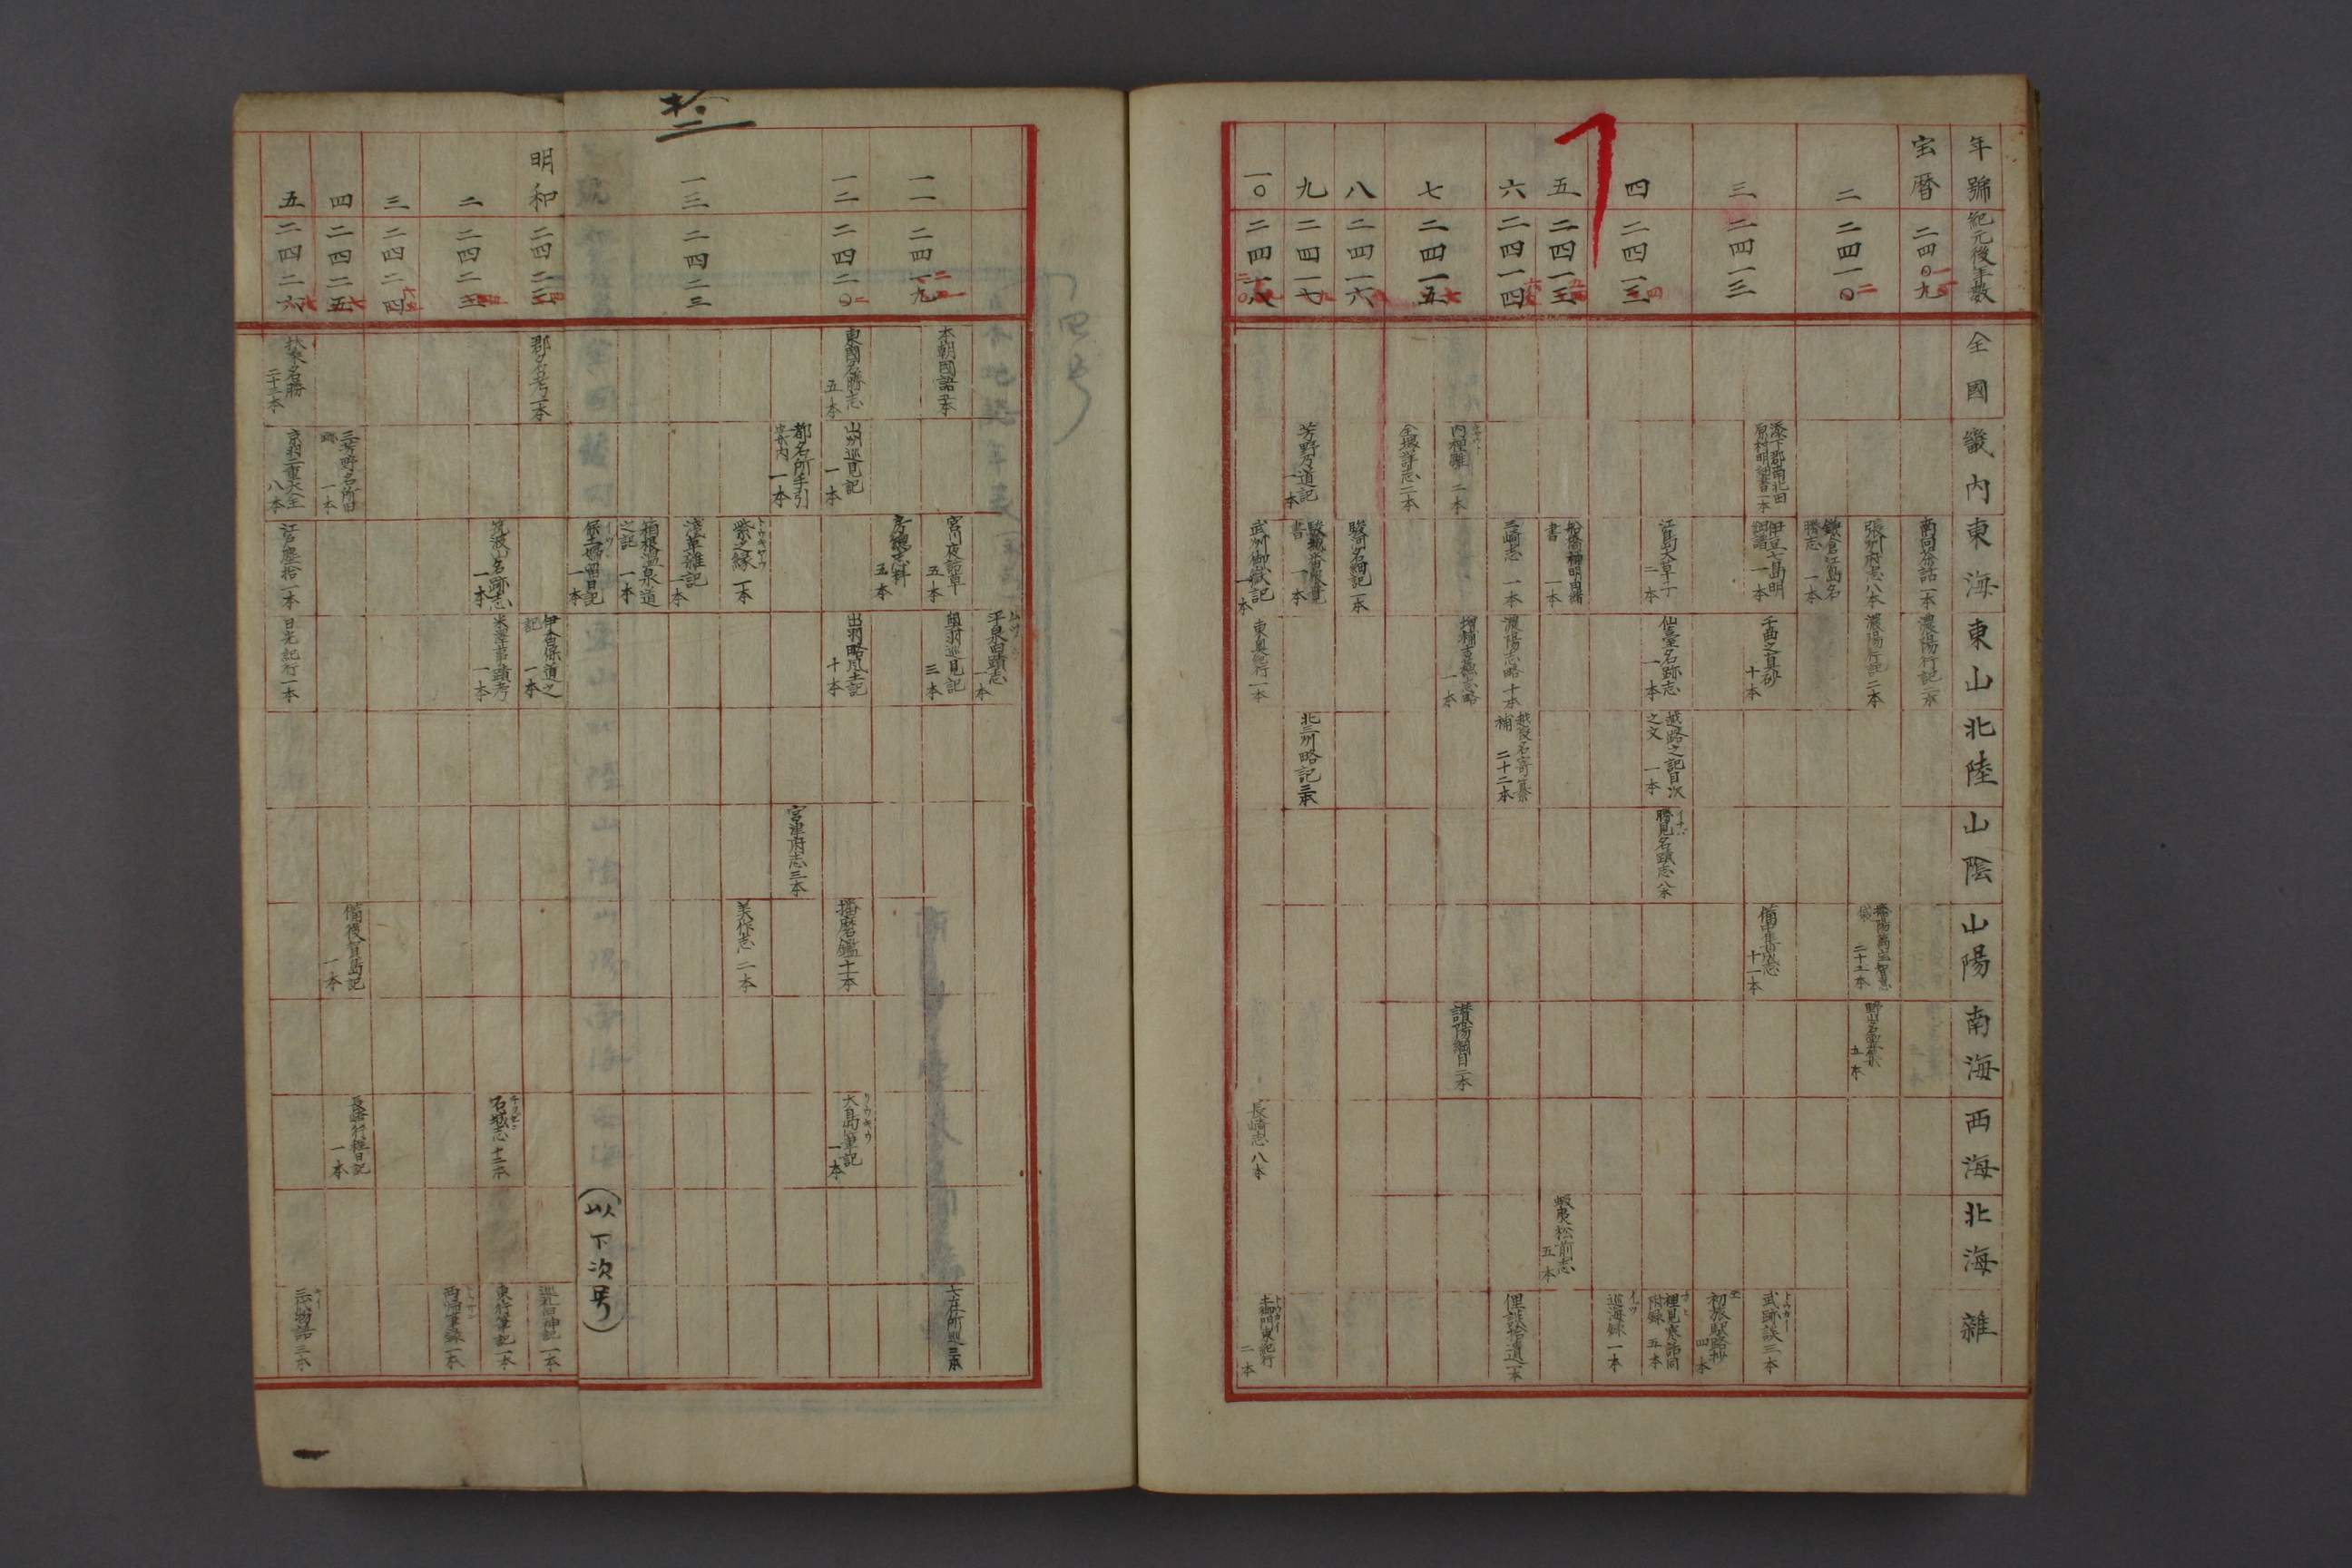 年號
紀元後年数
全國
畿内
東海
東山
北陸
山陰
山陽
南海
西海
北海
雜
宝暦
二四〇九
南向茶話一本
濃陽行記二本
二
二四一〇
張州府志八本
濃陽行記二本
播陽萬宝智恵袋 二十二本
野山名霊集 五本
鎌倉江島名勝志 一本
三
二四一三
添下郡南北田原村明細書一本
伊豆七島明細譜 一本
千曲之真砂 十本
備中集成志 十一本
トウカイ
武跡談三本
初旅駅路抄 四本
四
二四一三
江島大草丁 二本
仙臺名跡志 一本
越路之記目次之文 一本
イナバ
勝見名蹟志八本
裡見寒話同附録 五本
イヅ
巡海録一本
五
二四一三
船橋神明由緒書 一本
蝦夷松前志 五本
六
二四一四
三崎志 一本
濃陽志略十本
越後名寄纂補 二十二本
俚談拾遺一本
七
二四一五
内裡雛 二本
増補吉蘇志略 一本
讃陽綱目二本
金堀詳志二本
八
二四一六
駿河名細記一本
九
二四一七
芳野乃道記 一本
北三州略記三本
一〇
二四一八
武州御嶽記 一本
東奥紀行一本
長崎志八本
トウカイ
土御門東行 二本
拾二
四号
平泉旧蹟志 一本
一一
二四一九
本朝國語五本
宮川夜話草 五本
奥羽巡見記 三本
七在所巡三本
房總志料 五本
一二
二四二〇
東國名勝志 五本
出州巡見記 一本
出羽略風土記 十本
播磨鑑十一本
リウキウ
大島筆記 一本
都名所手引案内 一本
宮津府志三本
一三
二四二三
トウキヤウ
紫之縁 一本
美作志 二本
浅草雜記 一本
箱根温泉道之記 一本
明和
二四二三
郡名考一本
伊香保道之記 一本
巡礼旧神記一本
（以下次号）
二
二四二三
筑波山名跡志 一本
米澤事蹟考 一本
チクゼン
石城志十二本
東行筆記一本
両海筆録一本
三
二四二四
四
二四二五
三芳野名所旧跡 一本
備後賀島記 一本
長崎行役日記 一本
五
二四二六
扶桑名勝 二十二本
京羽二重大全 八本
江戸塵拾一本
日光記行一本
三徳物語三本